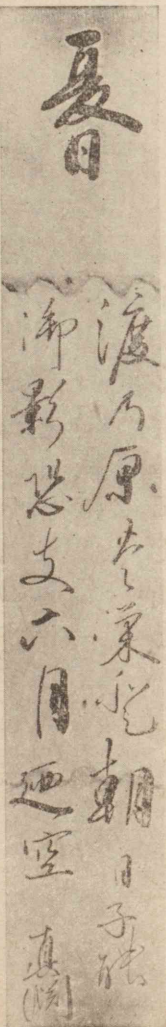 夏日
渡乃原豊栄登朝日子能
御影恐支六月廼空 真淵